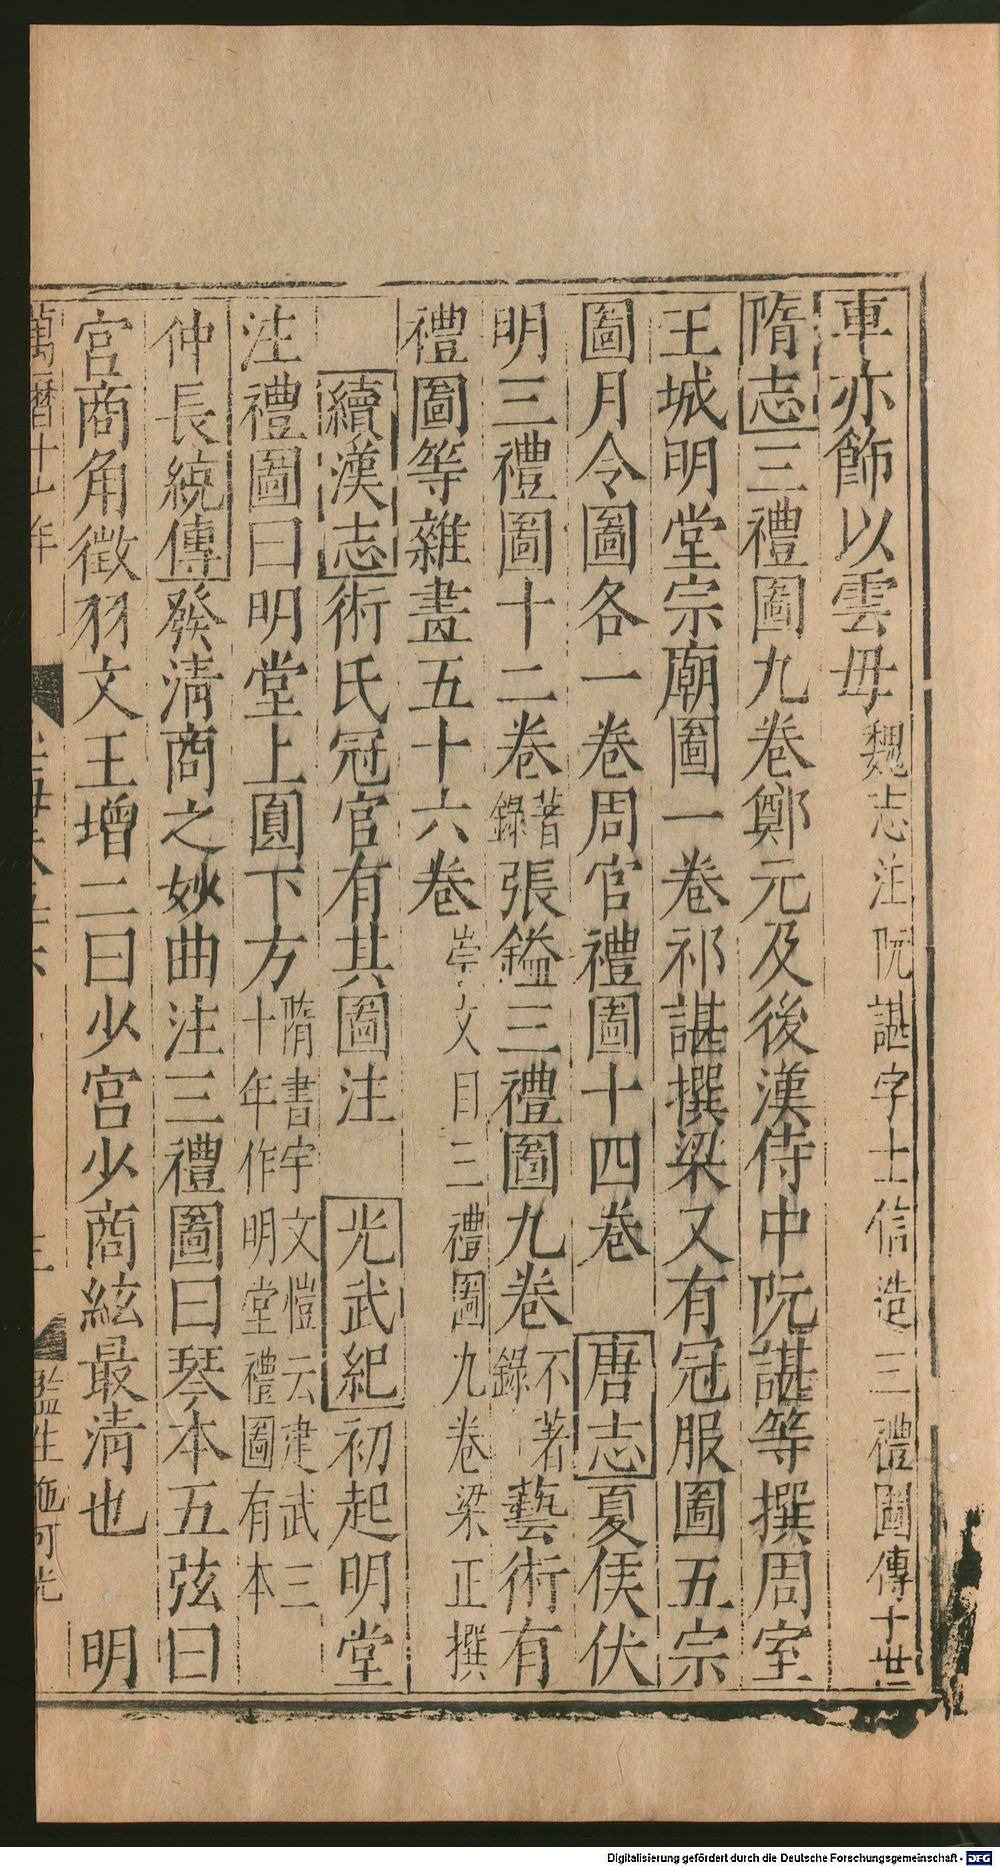 車亦飾以雲母魏志注阮諶字士信造三禮圖傳于世
隋志三禮圖九卷鄭元及後漢侍中阮諶等撰周室
王城明堂宗廟圖一卷祁諶撰梁又有冠服圖五宗
圖月令圖各一卷周官禮圖十四卷 唐志夏侯伏
明三禮圖十二卷著錄張鎰三禮圖九卷不著錄藝術有
禮圖等雜畫五十六卷崇文目三禮圖九卷梁正撰
續漢志術氏冠官有其圖注 光武紀初起明堂
注禮圖曰明堂上圓下方隋書宇文愷云建武三十年作明堂禮圖有本
仲長統傳發清商之妙曲注三禮圖曰琴本五弦曰
宮商角徵羽文王增二曰少宮少商絃最清也 明
萬曆十年
監生施可光
Digitalisierung gefördert durch die Deutsche Forschungsgemeinschaft - DFG